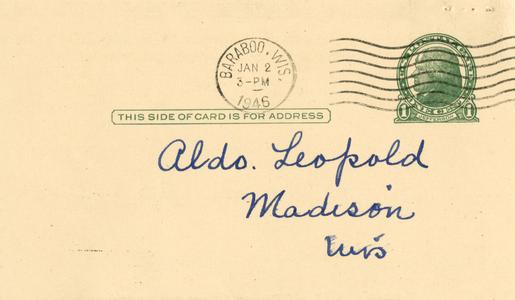 BARABOO, WIS.
JAN 2
3-PM
1946
THIS SIDE OF CARD IS FOR ADDRESS
1 JEFFERSON 1
Aldo. Leopold
Madison
Wis